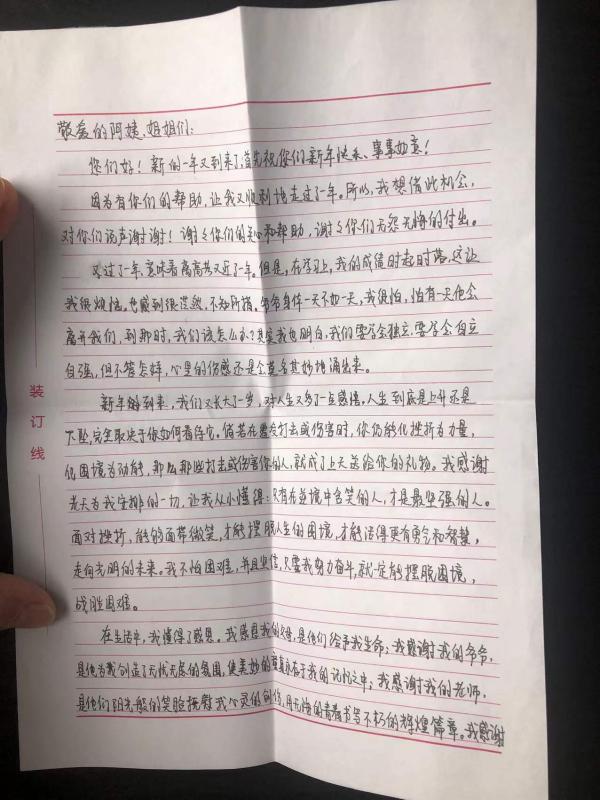 敬爱的阿姨、姐姐们：
您们好！新的一年又到来了，首先祝你们新年快乐、事事如意！
因为有你们的帮助，让我又顺利地走过了一年。所以，我想借此机会，
对你们说声谢谢！谢谢你们的关心和帮助，谢谢你们无怨无悔的付出。
又过了一年，意味着离高考又近了一年。但是，在学习上，我的成绩时起时落，这让
我很烦恼。也感到很茫然，不知所措。爷爷身体一天不如一天，我很怕，怕有一天他会
离开我们，到那时，我们该怎么办？其实我也明白，我们要学会独立，要学会自立
自强，但不管怎样，心里的伤感还是会莫名其妙地涌出来。
新年的到来，我们又长大了一岁，对人生又多了一点感悟，人生到底是上升还是
下坠，完全取决于你如何看待它。倘若在遭受打击或伤害时，你仍能化挫折为力量，
化困境为动能，那么那些打击或伤害你的人，就成了上天送给你的礼物。我感谢
老天为我安排的一切，让我从小懂得：只有在逆境中含笑的人，才是最坚强的人。
面对挫折，能够面带微笑，才能摆脱人生的困境，才能活得更有勇气和智慧，
走向光明的未来。我不怕困难，并且坚信，只要我努力奋斗，就一定能摆脱困境，
战胜困难。
在生活中，我懂得了感恩。我感恩我的父母，是他们给予我生命；我感谢我的爷爷，
是他为我创造了无忧无虑的氛围，使美妙的童真永存于我的记忆之中；我感谢我的老师，
是他们阳光般的笑脸抚慰我心灵的创伤，用无悔的青春书写不朽的辉煌篇章。我感谢
装订线